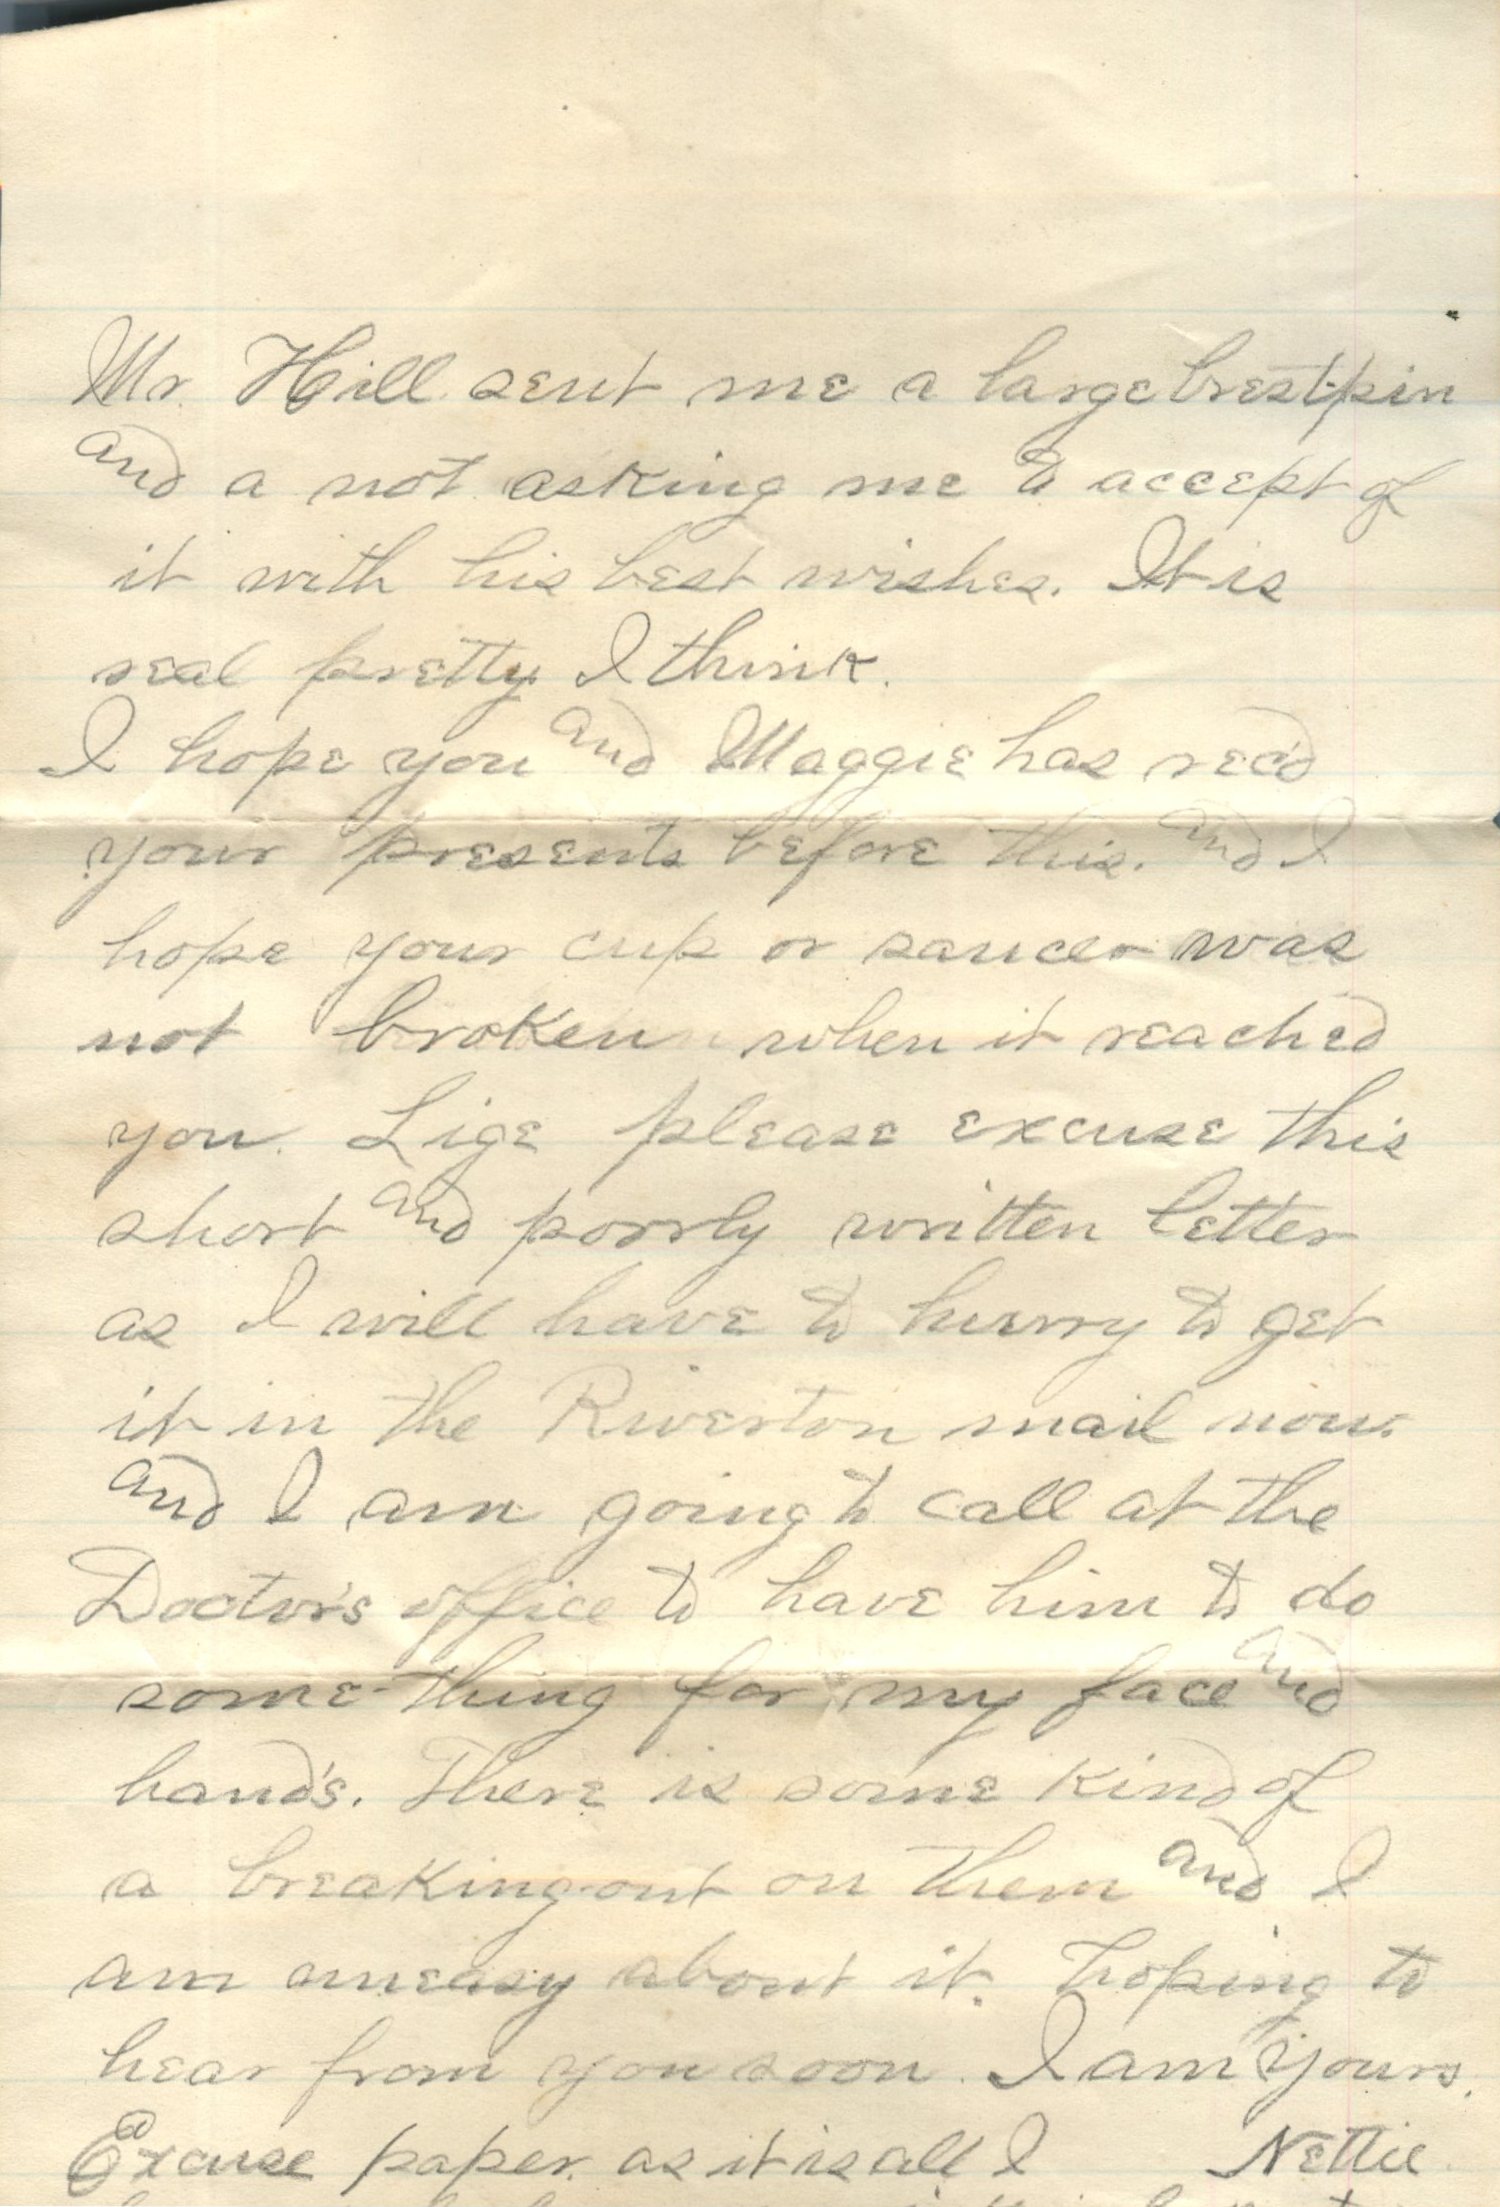 Mr. Hill sent me a large brest-pin
and a not asking me to accept of
it with his best wishes. It is
real pretty I think.
I hope you and Maggie has rec'd
your presents before this. and I
hope your cup or saucer was
not broken when it reached
you. Lige please excuse this
short and poorly written letter
as I will have to hurry to get
it in the Riverton mail now.
and I am going to call at the
Doctor's office to have him to do
some-thing for my face and
hand's. There is some kind of
a breaking-out on them and I
am uneasy about it. hoping to
hear from you soon. I am Yours.
Excuse paper. as it is all I Nettie